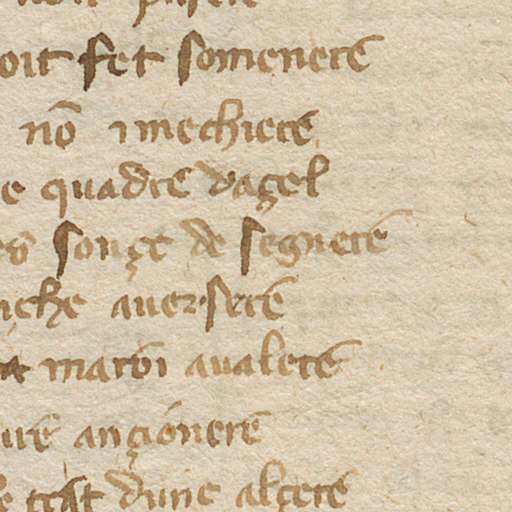 oit fet somenere
nō imechiere
e quadre dagel
sonçe de segnere
iche auer·sere
maroi aualere
ançionere
trat dune alçere